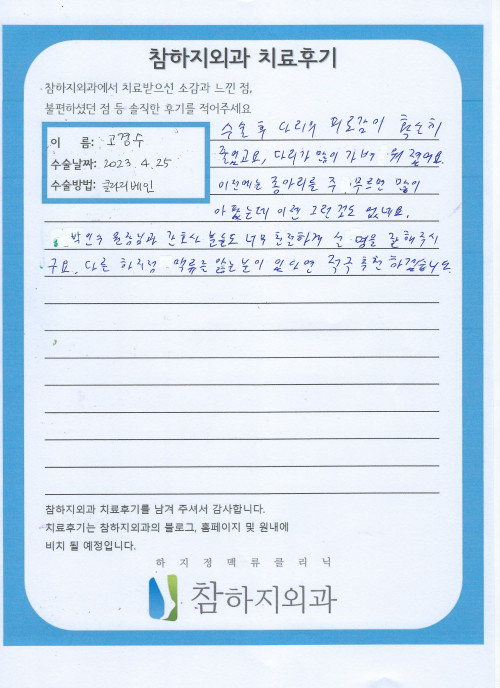 참하지외과 치료후기
참하지외과에서 치료받으신 소감과 느낀 점,
불편하셨던 점 등 솔직한 후기를 적어주세요
이 름: 고경수
수술날짜: 2023. 4. 25
수술방법: 클라리베인
수술 후 다리의 피로감이 확실히
줄었고요, 다리가 많이 가벼워졌어요.
이전에는 종아리를 주무르면 많이
아팠는데 이젠 그런것도 없네요.
원장님과 간호사 분들도 너무 친절하게 설명을 잘해주시
구요, 다른 하지정맥류를 앓는분이 있다면 적극추천하겠습니다.
참하지외과 치료후기를 남겨 주셔서 감사합니다.
치료후기는 참하지외과의 블로그, 홈페이지 및 원내에
비치 될 예정입니다.
하지정맥류클리닉
참하지외과